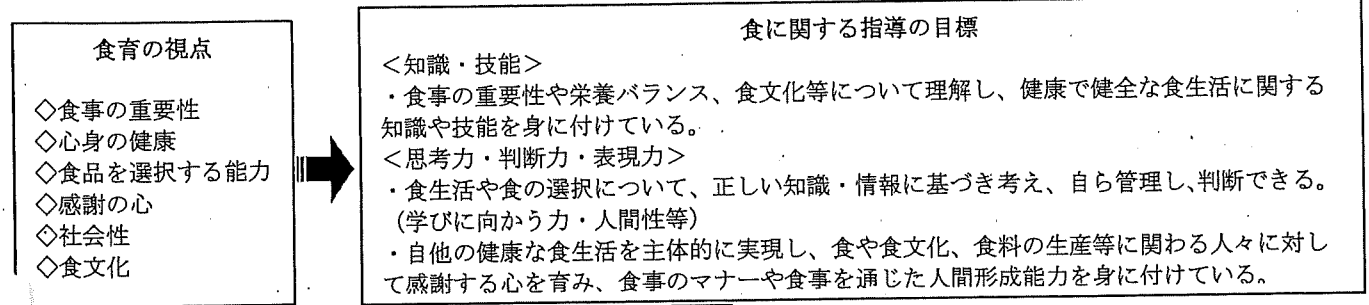 食育の視点
◇食事の重要性
◇心身の健康
◇食品を選択する能力
◇感謝の心
◇社会性
◇食文化
食に関する指導の目標
＜知識・技能＞
・食事の重要性や栄養バランス、食文化等について理解し、健康で健全な食生活に関する
知識や技能を身に付けている。
＜思考力・判断力・表現力＞
・食生活や食の選択について、正しい知識・情報に基づき考え、自ら管理し、判断できる。
（学びに向かう力・人間性等）
・自他の健康な食生活を主体的に実現し、食や食文化、食料の生産等に関わる人々に対し
て感謝する心を育み、食事のマナーや食事を通じた人間形成能力を身に付けている。